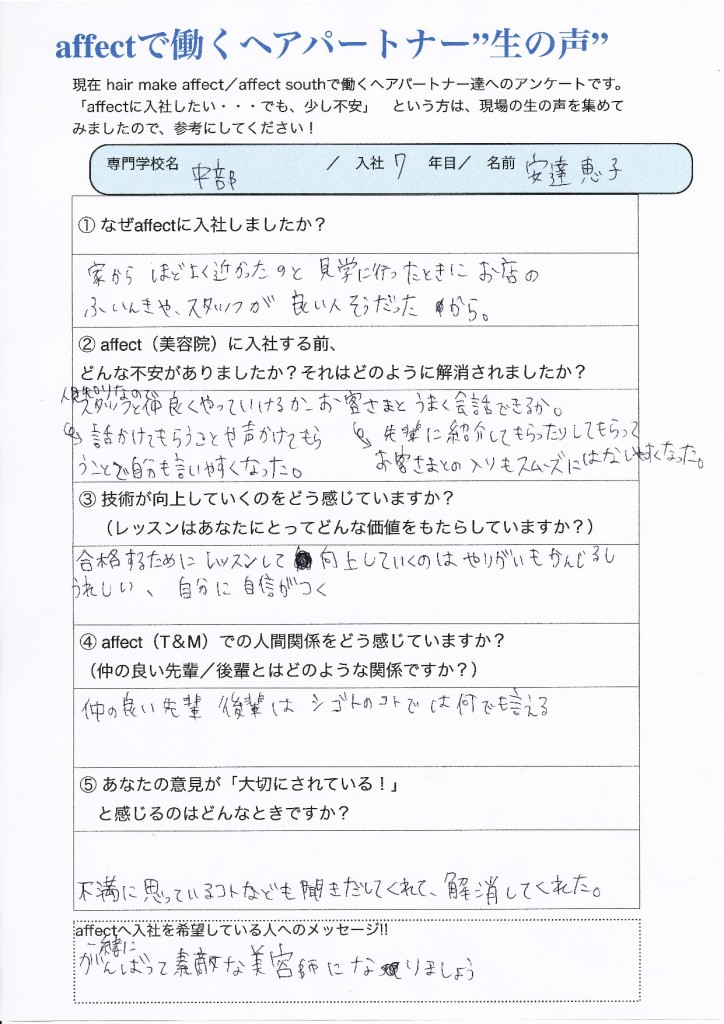 affectで働くヘアパートナー”生の声”
現在 hair make affect／affect southで働くヘアパートナー達へのアンケートです。
「affectに入社したい・・・でも、少し不安」　という方は、現場の生の声を集めて
みましたので、参考にしてください！
専門学校名 中部 ／ 入社 7 年目／ 名前 安達 恵子
① なぜaffectに入社しましたか？
家から ほどよく近かったのと 見学に行ったときに お店の
ふいんきや、スタッフが 良い人そうだった から。
② affect（美容院）に入社する前、
どんな不安がありましたか？それはどのように解消されましたか？
人見知りなので
スタッフと仲良くやっていけるか お客さまと うまく会話できるか。
話かけてもらうことや声かけてもら
うことで自分も言いやすくなった。
先輩に紹介してもらったりしてもらって
お客さまとの入りもスムーズにはなしやすくなった。
③ 技術が向上していくのをどう感じていますか？
（レッスンはあなたにとってどんな価値をもたらしていますか？）
合格するために レッスンして 向上していくのは やりがいもかんじるし
うれしい、 自分に 自信がつく
④ affect（T＆M）での人間関係をどう感じていますか？
（仲の良い先輩／後輩とはどのような関係ですか？）
仲の良い先輩 後輩は シゴトのコトでは何でも言える
⑤ あなたの意見が「大切にされている！」
と感じるのはどんなときですか？
不満に思っているコトなども聞きだしてくれて、解消してくれた。
affectへ入社を希望している人へのメッセージ!!
一緒に
がんばって素敵な美容師になりましょう